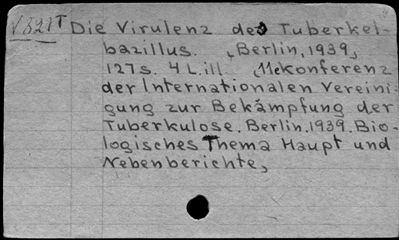 V321T Die Virulenz des Tuberkel-
bazillus. Berlin, 1939,
127 s. 4 L. ill. Mekonferenz
der Internationalen Vereini-
gung zur Bekämpfung der
Tuberkulose, Berlin, 1939. Bio-
logisches Thema Haupt und
Nebenberichte,